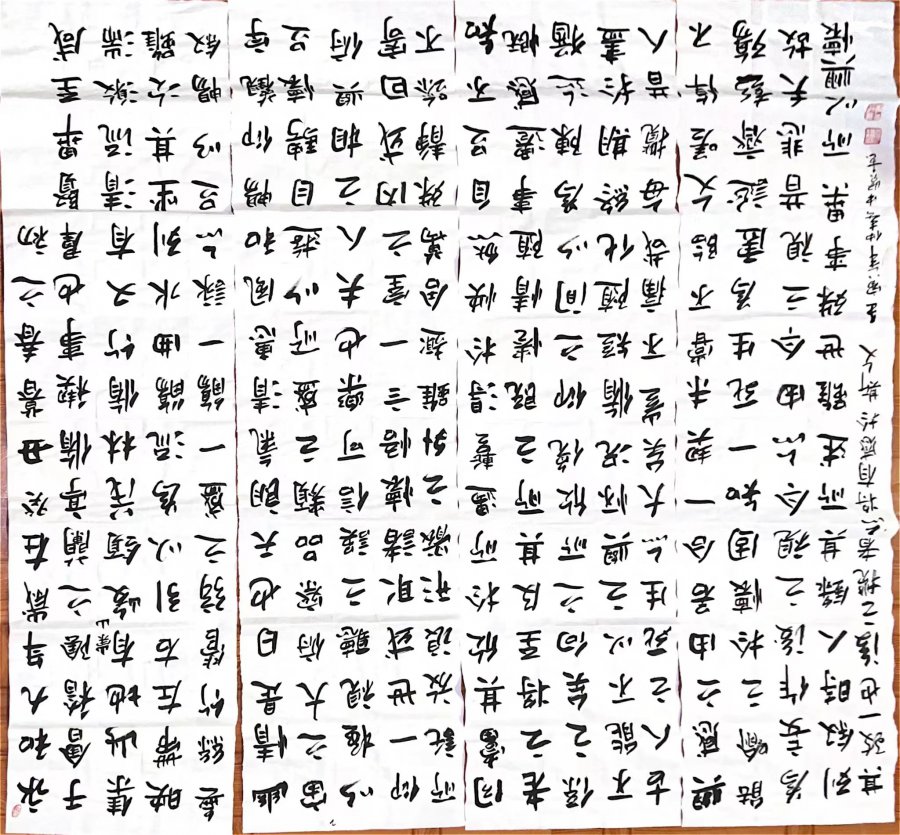 永和九年歲在癸丑暮春之初
于會稽陰之蘭亭脩禊事也羣賢畢至咸
集此地有崇山峻領茂林脩竹又有清流激湍
映帶左右引以為流觴曲水列坐其次雖
無絲竹管弦之盛一觴一詠亦足以暢敘
幽情是日也天朗氣清惠風和暢仰觀宇
宙之大俯察品類之盛所以遊目騁懷足
以極視聽之娛信可樂也夫人之相與俯
仰一世或取諸懷悟言一室之內或因寄
所託放浪形骸之外雖趣舍萬殊靜躁不
同當其欣於所遇蹔得於快然自足不知
老之將至及其所之既惓情隨事遷感慨
係之矣向之所欣俛仰之間以為陳迹猶
不能不以之興懷況脩短隨化終期於盡
古人云死生亦大矣豈不痛哉每攬昔人
興感之由若合一契未嘗不臨文嗟悼不
能喻之於懷固知一死生為虛誕齊彭殤
為妄作後之視今亦由今之視昔悲夫故
列敘時人錄其所述雖世殊事異所以興懷
其致一也後之攬者亦將有感於斯文